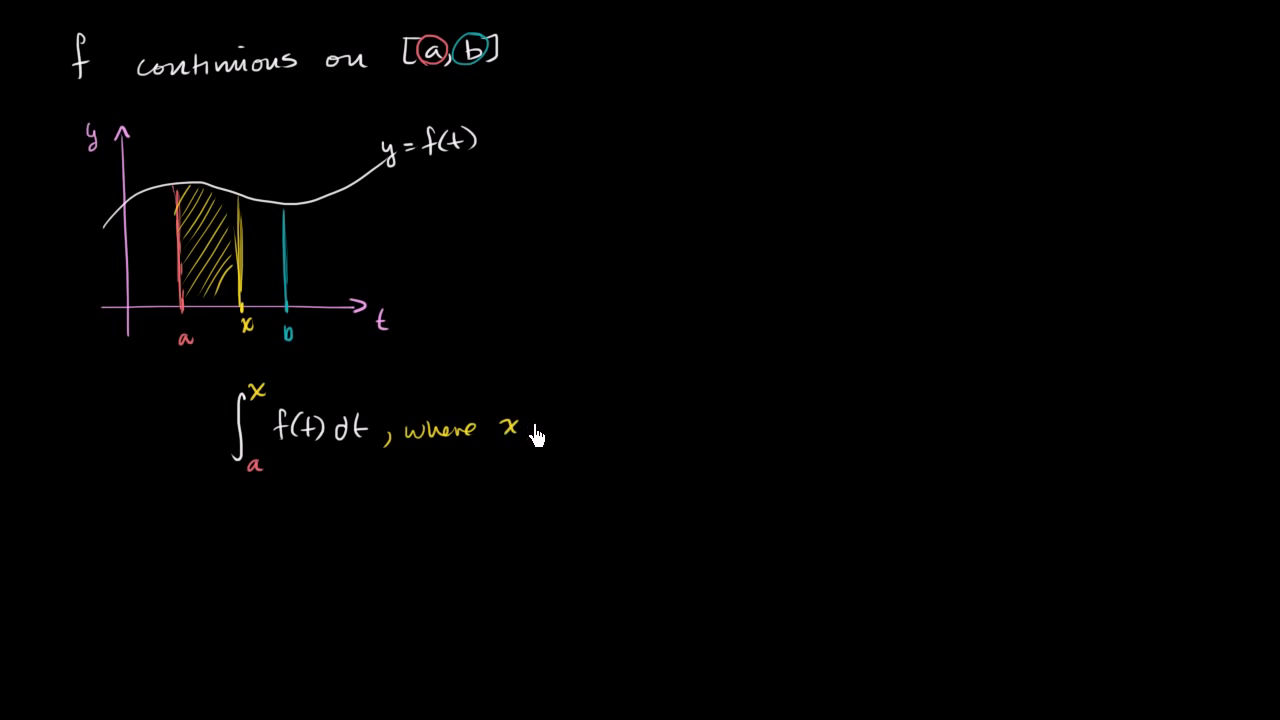 f continuous on [a,b]
y
y = f(t)
a x b t
∫ₐˣ f(t) dt , where x